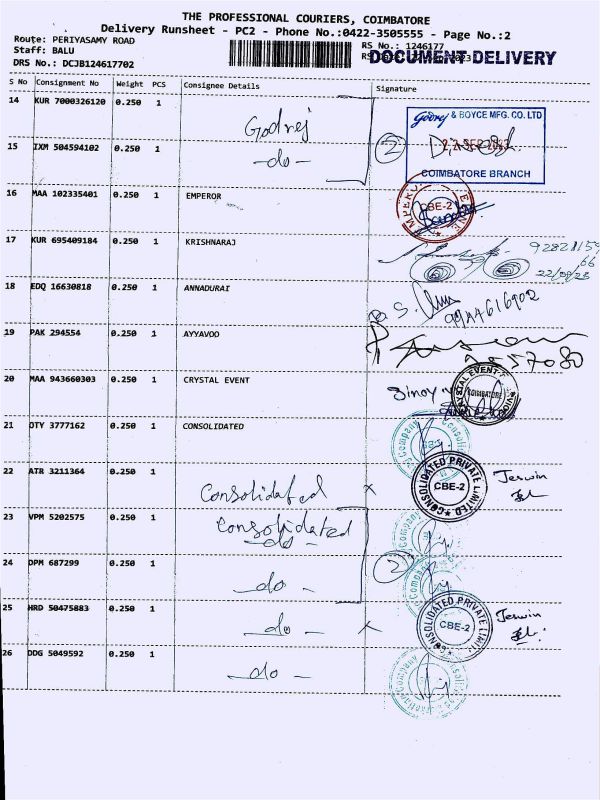 THE PROFESSIONAL COURIERS, COIMBATORE
Delivery Runsheet - PC2 - Phone No.:0422-3505555 - Page No.:2
Route: PERIYASAMY ROAD
RS No.: 1246177
Staff: BALU
DOCUMENT DELIVERY
DRS No.: DCJB124617702
S No Consignment No Weight PCS Consignee Details Signature
14 KUR 7000326120 0.250 1 Godrej
Godrej & BOYCE MFG. CO. LTD
15 IXM 504594102 0.250 1 -do- 2
COIMBATORE BRANCH
16 MAA 102335401 0.250 1 EMPEROR
CBE-2
17 KUR 695409184 0.250 1 KRISHNARAJ
22/09/23
18 EDQ 16630818 0.250 1 ANNADURAI
19 PAK 294554 0.250 1 AYYAVOO
20 MAA 943660303 0.250 1 CRYSTAL EVENT
COIMBATORE
21 OTY 3777162 0.250 1 CONSOLIDATED
22 ATR 3211364 0.250 1 Consolidated x
CONSOLIDATED PRIVATE LIMITED CBE-2 Jeswin
23 VPM 5202575 0.250 1 Consolidated
-do-
24 DPM 687299 0.250 1 -do- 2
25 HRD 50475883 0.250 1 -do- x
CONSOLIDATED PRIVATE LIMITED CBE-2 Jeswin
26 DDG 5049592 0.250 1 -do-